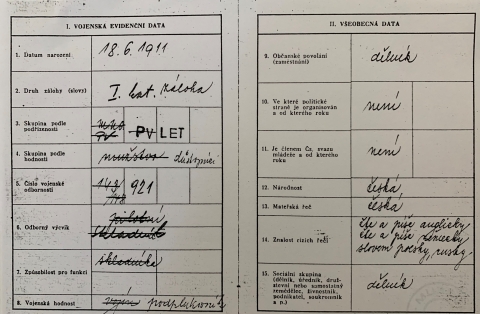 I. VOJENSKÁ EVIDENČNÍ DATA
1. Datum narození
18.6.1911
2. Druh zálohy (slovy)
I. kat. záloha
3. Skupina podle
podřízenosti
PV LET
4. Skupina podle
hodnosti
mužstvo důstojníci
5. Číslo vojenské
odbornosti
921
6. Odborný výcvik
7. Způsobilost pro funkci
8. Vojenská hodnost
vojín podplukovník
II. VŠEOBECNÁ DATA
9. Občanské povolání
(zaměstnání)
dělník
10. Ve které politické
straně je organisován
a od kterého roku
není
11. Je členem Čs. svazu
mládeže a od kterého
roku
není
12. Národnost
česká
13. Mateřská řeč
česká
14. Znalost cizích řečí
čte a píše anglicky
čte a píše německy
slovem polsky, rusky
15. Sociální skupina
(dělník, úředník, druž-
stevní nebo samostatný
zemědělec, živnostník,
podnikatel, soukromník
a p.)
dělník